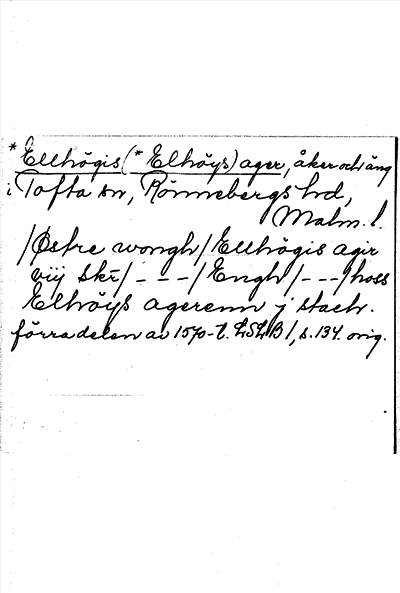 *Ellhögis (*Elhöys) ager, åker och äng
i Tofta sn, Rönnebergs hd,
Malm. l.
/Østre wongh/ Ellhögis agir
viij skr̄/ - - - /Engh/ - - - /hoss
Elhöys agerenn j stoch.
förra delen av 1570-t. LSLB 1, s. 134. orig.